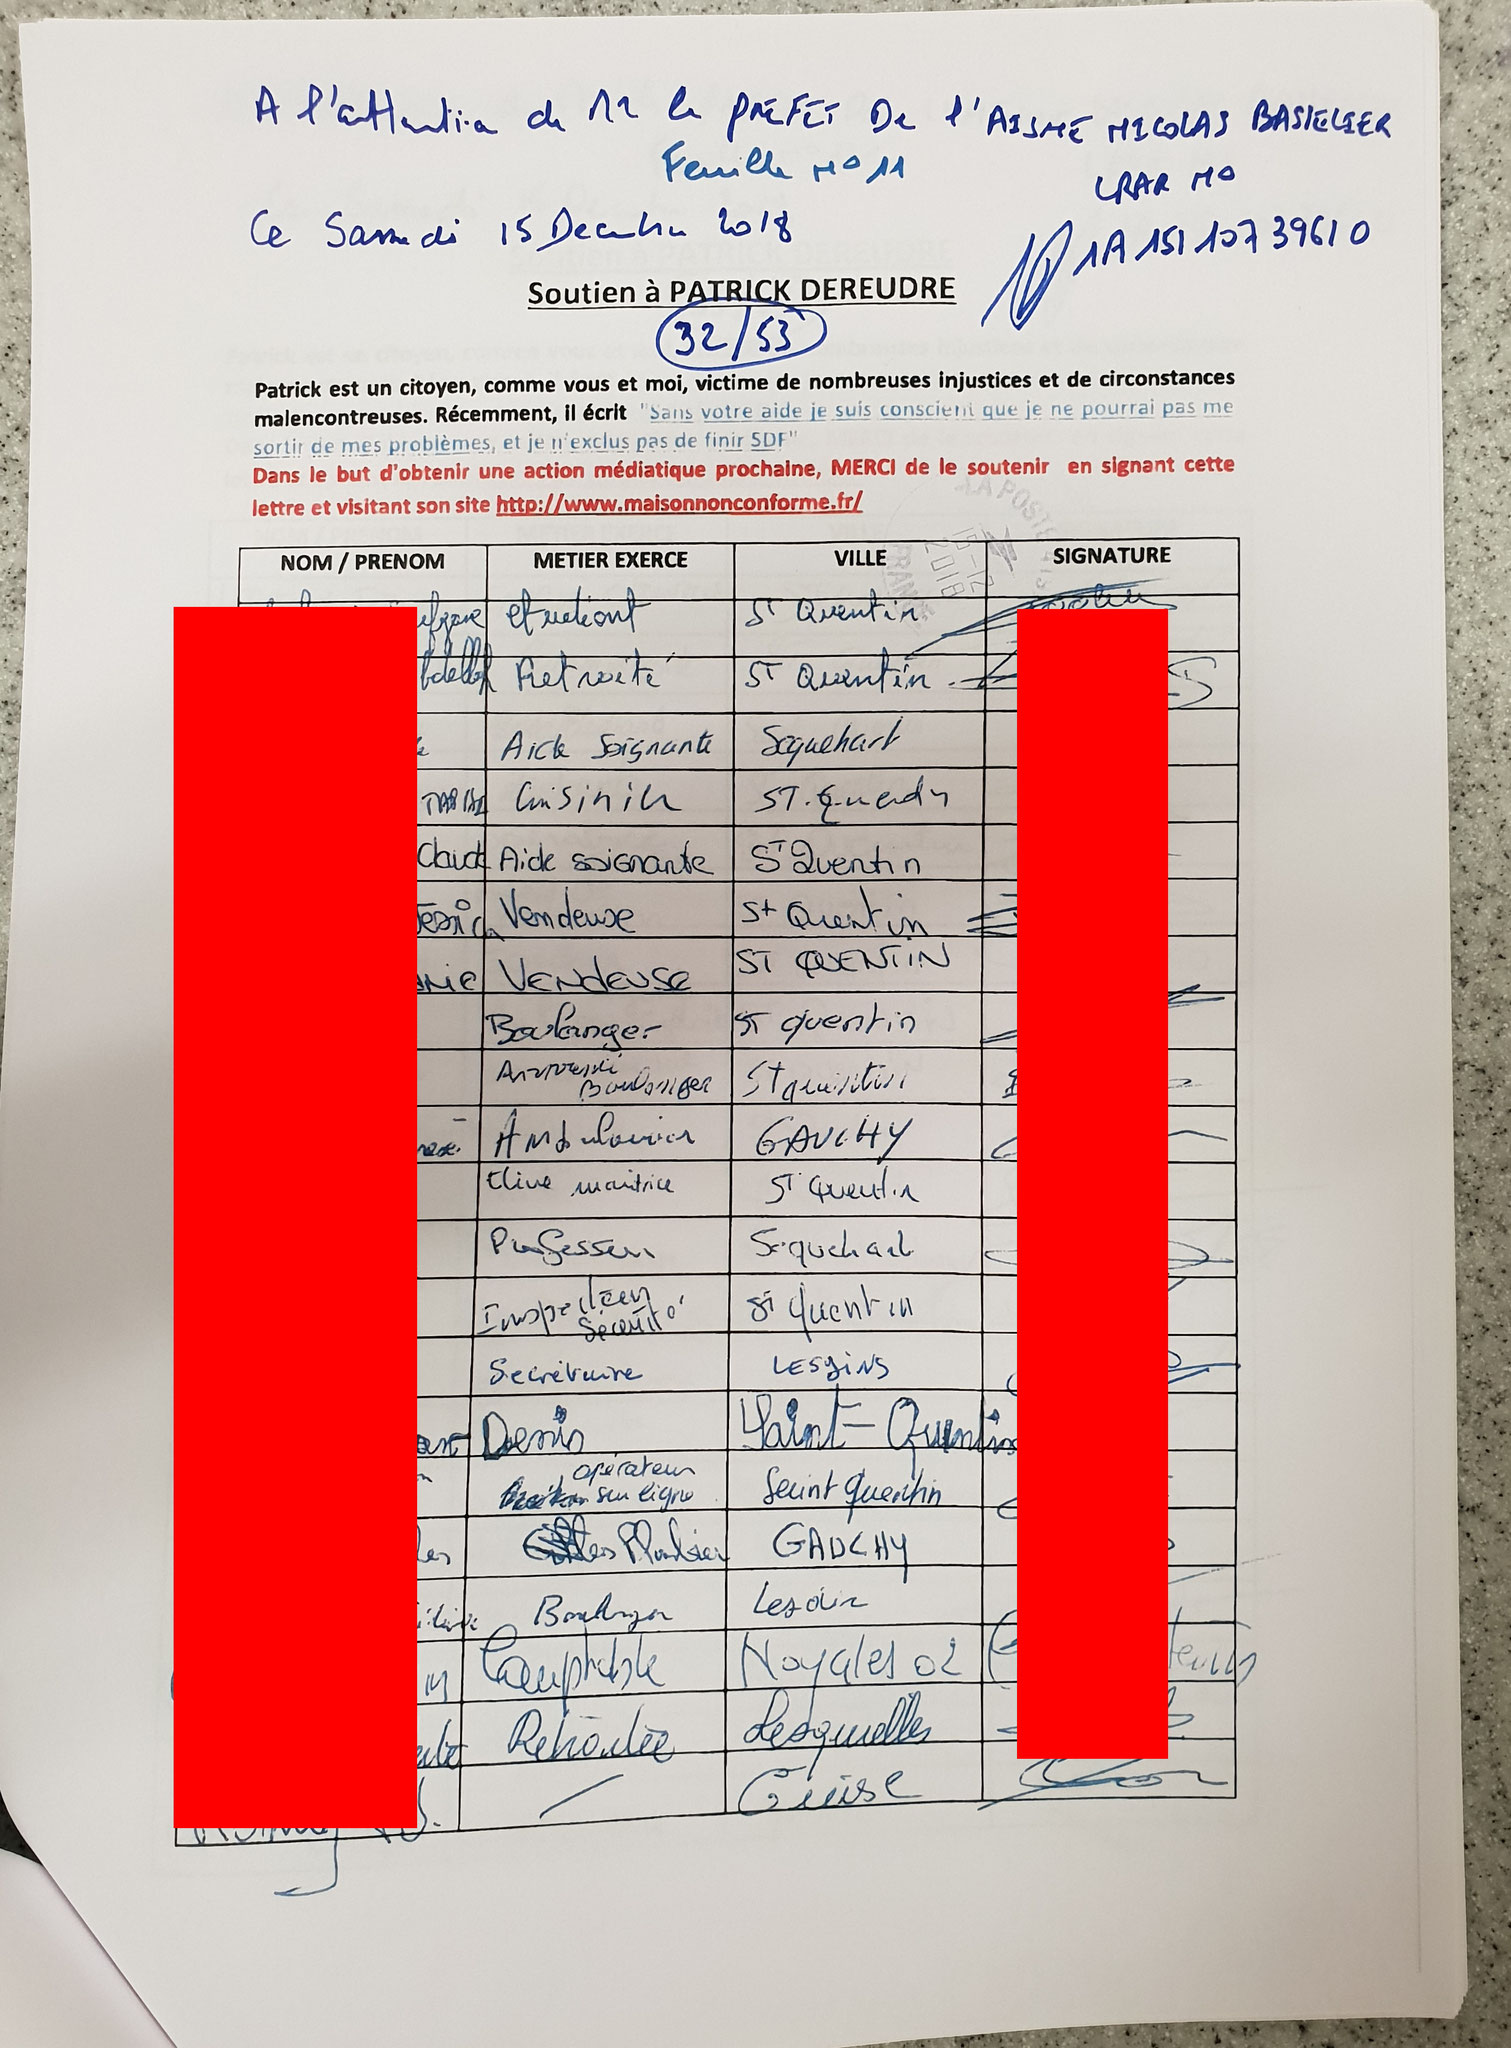 A l'attention de Mr le PREFET De l'AISNE NICOLAS BASSELIER
Feuille N° 11
LRAR N°
Ce Samedi 15 Decembre 2018
1A 151 107 3961 0
Soutien à PATRICK DEREUDRE
32/53
Patrick est un citoyen, comme vous et moi, victime de nombreuses injustices et de circonstances
malencontreuses. Récemment, il écrit "Sans votre aide je suis conscient que je ne pourrai pas me
sortir de mes problèmes, et je n'exclus pas de finir SDF"
Dans le but d'obtenir une action médiatique prochaine, MERCI de le soutenir en signant cette
lettre et visitant son site http://www.maisonnonconforme.fr/
LA POSTE
15-12
2018
FRANCE
NOM / PRENOM METIER EXERCE VILLE SIGNATURE
etudiant St Quentin
Retraité ST Quentin
Aide Soignante Sequehart
Cuisinier ST. Quentin
Claude Aide soignante St Quentin
Vendeuse St Quentin
VENDEUSE ST QUENTIN
Boulanger ST quentin
Boulanger St quentin
Ambulancier GAUCHY
Elive monitrice St Quentin
Professeur Sequehart
Inspecteur Sécurité St Quentin
Secrétaire LESDINS
Denis Saint-Quentin
opérateur sur ligne Saint Quentin
Plombier GAUCHY
Boulanger Lesdin
Comptable Noyales 02
Retraitée Lesquielles
/ Guise